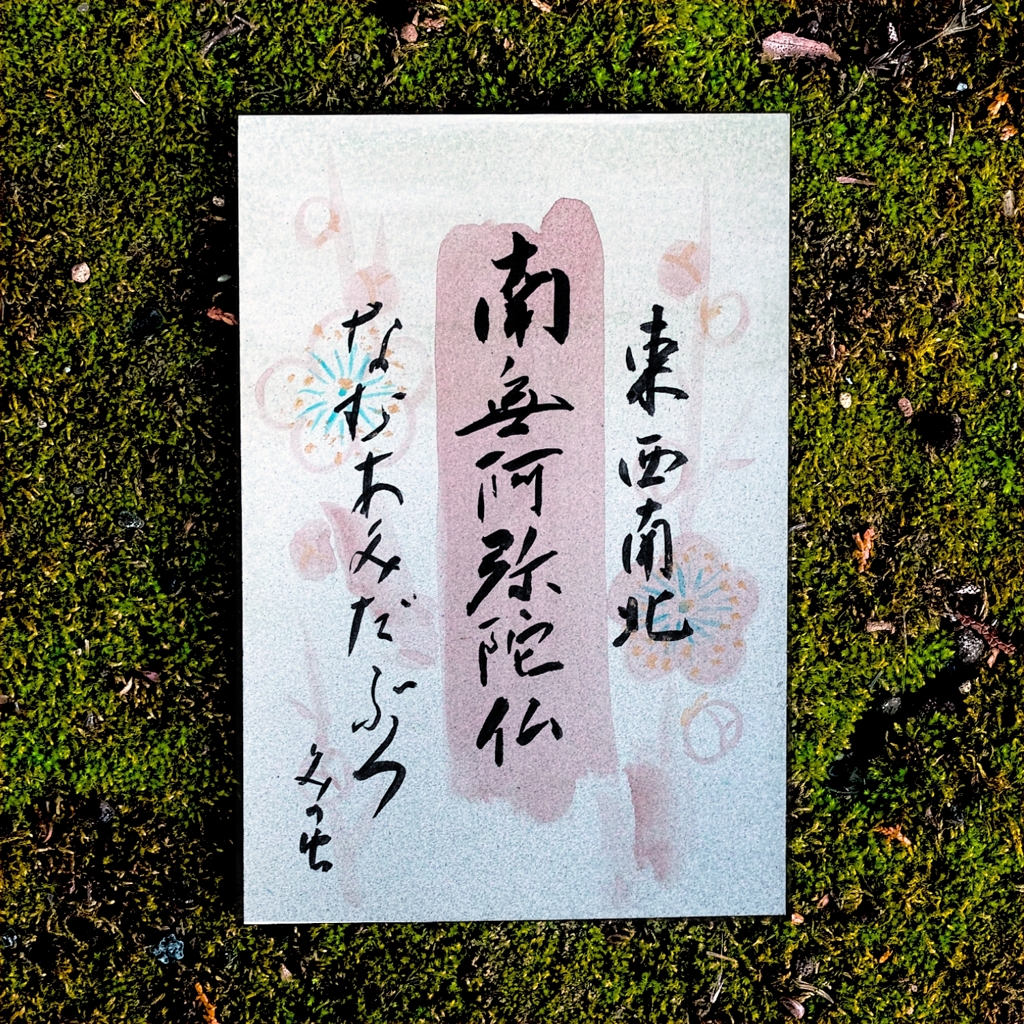 東西南北
南無阿弥陀仏
なむあみだぶつ